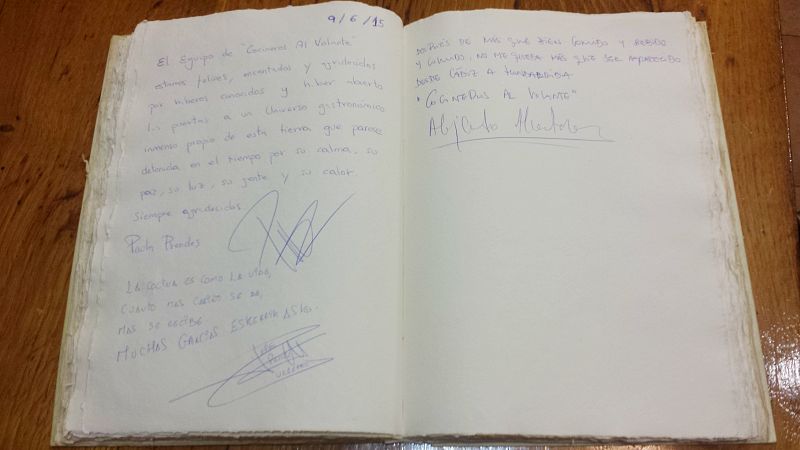 9/6/15
El Equipo de "Cocineros Al Volante"
estamos felices, encantados y agradecidos
por haberos conocidos y haber abierto
las puertas a un Universo gastronómico
inmenso propio de esta tierra que parece
detenida en el tiempo por su calma, su
paz, su luz, su gente y su calor.
Siempre agradecidos
Paola Prendes
LA COCINA ES COMO LA VIDA,
CUANTO MAS CARIÑO SE DA,
MAS SE RECIBE
MUCHAS GRACIAS. ESKERRIK ASKO.
DESPUÉS DE MAS QUE BIEN COMIDO Y BEBIDO
Y, NO ME QUEDA MÁS QUE SER AGRADECIDO
DESDE CÁDIZ A HONDARRIBIA
"COCINEROS AL VOLANTE"
Alejandro